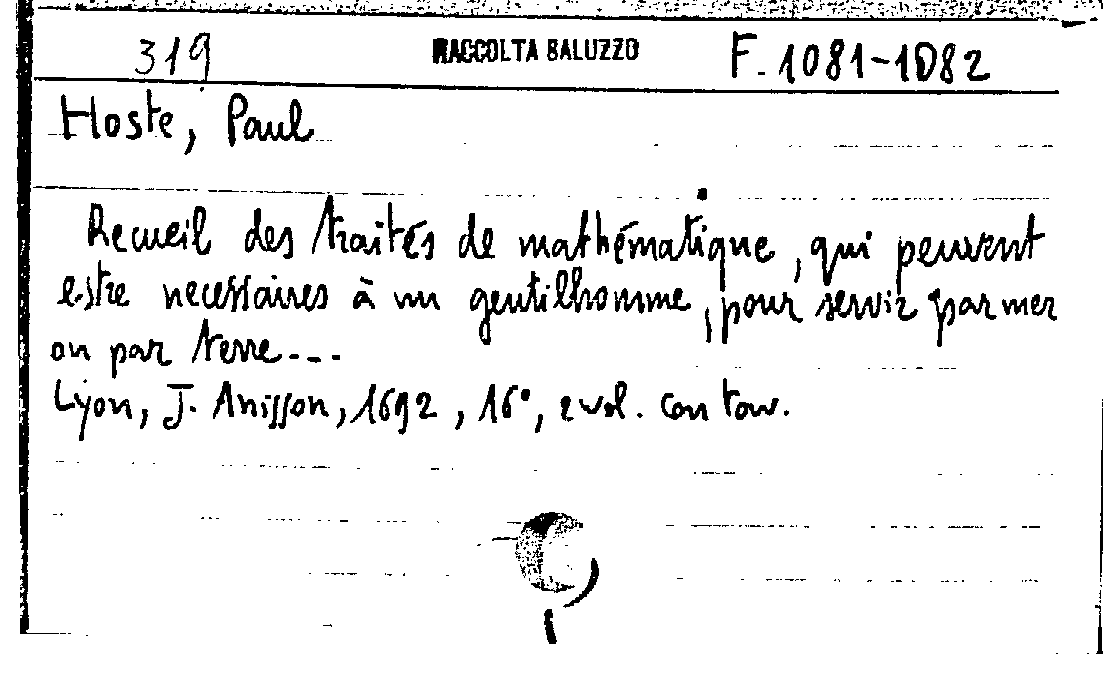 319 RACCOLTA SALUZZO F. 1081-1082
Hoste, Paul
Recueil des traités de mathématique, qui peuvent
estre necessaires à un gentilhomme, pour servir par mer
ou par terre...
Lyon, J. Anisson, 1692, 16°, 2 vol. con tav.